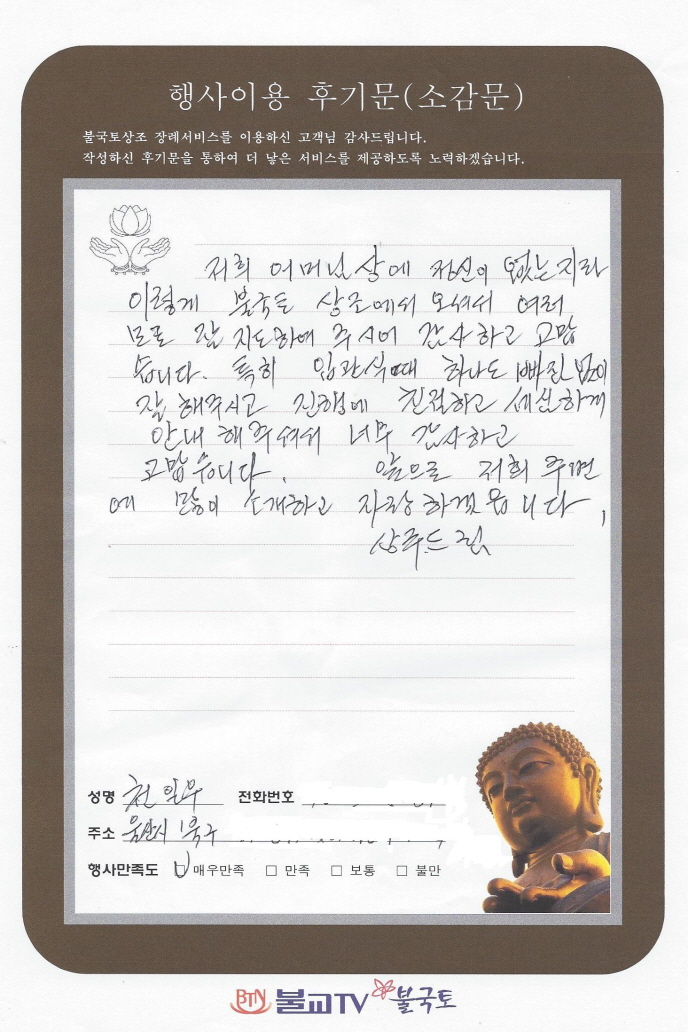 행사이용 후기문(소감문)
불국토상조 장례서비스를 이용하신 고객님 감사드립니다.
작성하신 후기문을 통하여 더 낳은 서비스를 제공하도록 노력하겠습니다.
저희 어머님 상에 정신이 없는지라
이렇게 불국토 상조에서 오셔서 여러
모로 잘 지도하여 주시어 감사하고 고맙
습니다. 특히 입관식때 하나도 빠진 법이
잘 해주시고 진행에 친절하고 세심하게
안내 해주셔서 너무 감사하고
고맙습니다. 앞으로 저희 주변
에 많이 소개하고 자랑하겠습니다,
상주드림
성명 천일우 전화번호
주소 울산시 북구
행사만족도 매우만족 □ 만족 □ 보통 □ 불만
BTN 불교TV 불국토